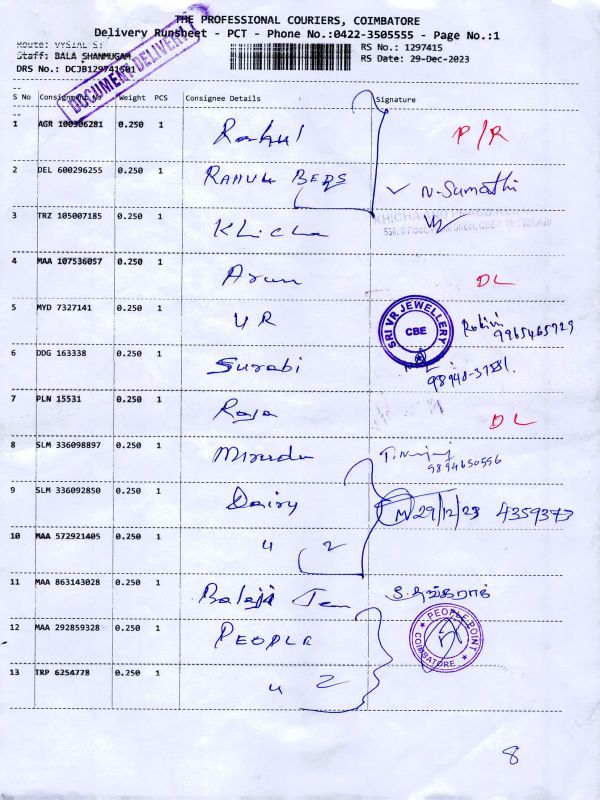 THE PROFESSIONAL COURIERS, COIMBATORE
Delivery Runsheet - PCT - Phone No.:0422-3505555 - Page No.:1
Route: VYSIAL ST
RS No.: 1297415
Staff: BALA SHANMUGAM
RS Date: 29-Dec-2023
DRS No.: DCJB129741501
DOCUMENT DELIVERY
S No Consignment No Weight PCS Consignee Details Signature
1 AGR 100306281 0.250 1 Rahul P/R
2 DEL 600296255 0.250 1 RAHUL BERS N-Sumathi
3 TRZ 105007185 0.250 1 Khicha
4 MAA 107536057 0.250 1 Arun DL
5 MYD 7327141 0.250 1 UR SRI VR JEWELLERY CBE 9965465729
6 DDG 163338 0.250 1 Surabi
7 PLN 15531 0.250 1 Raja DL
8 SLM 336098897 0.250 1 9894650556
9 SLM 336092850 0.250 1 Dairy 29/12/23 4359373
10 MAA 572921405 0.250 1 " 2
11 MAA 863143028 0.250 1 Balaji
12 MAA 292859328 0.250 1 PEOPLE PEOPLE POINT COIMBATORE
13 TRP 6254778 0.250 1 " 2
8